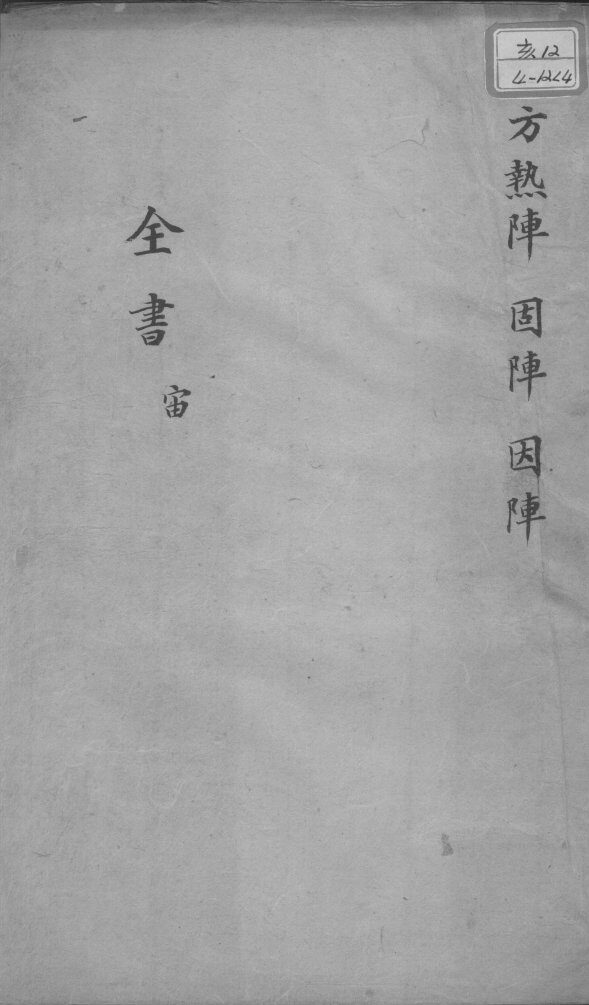 方熱陣 固陣 因陣
全書 宙
亥12